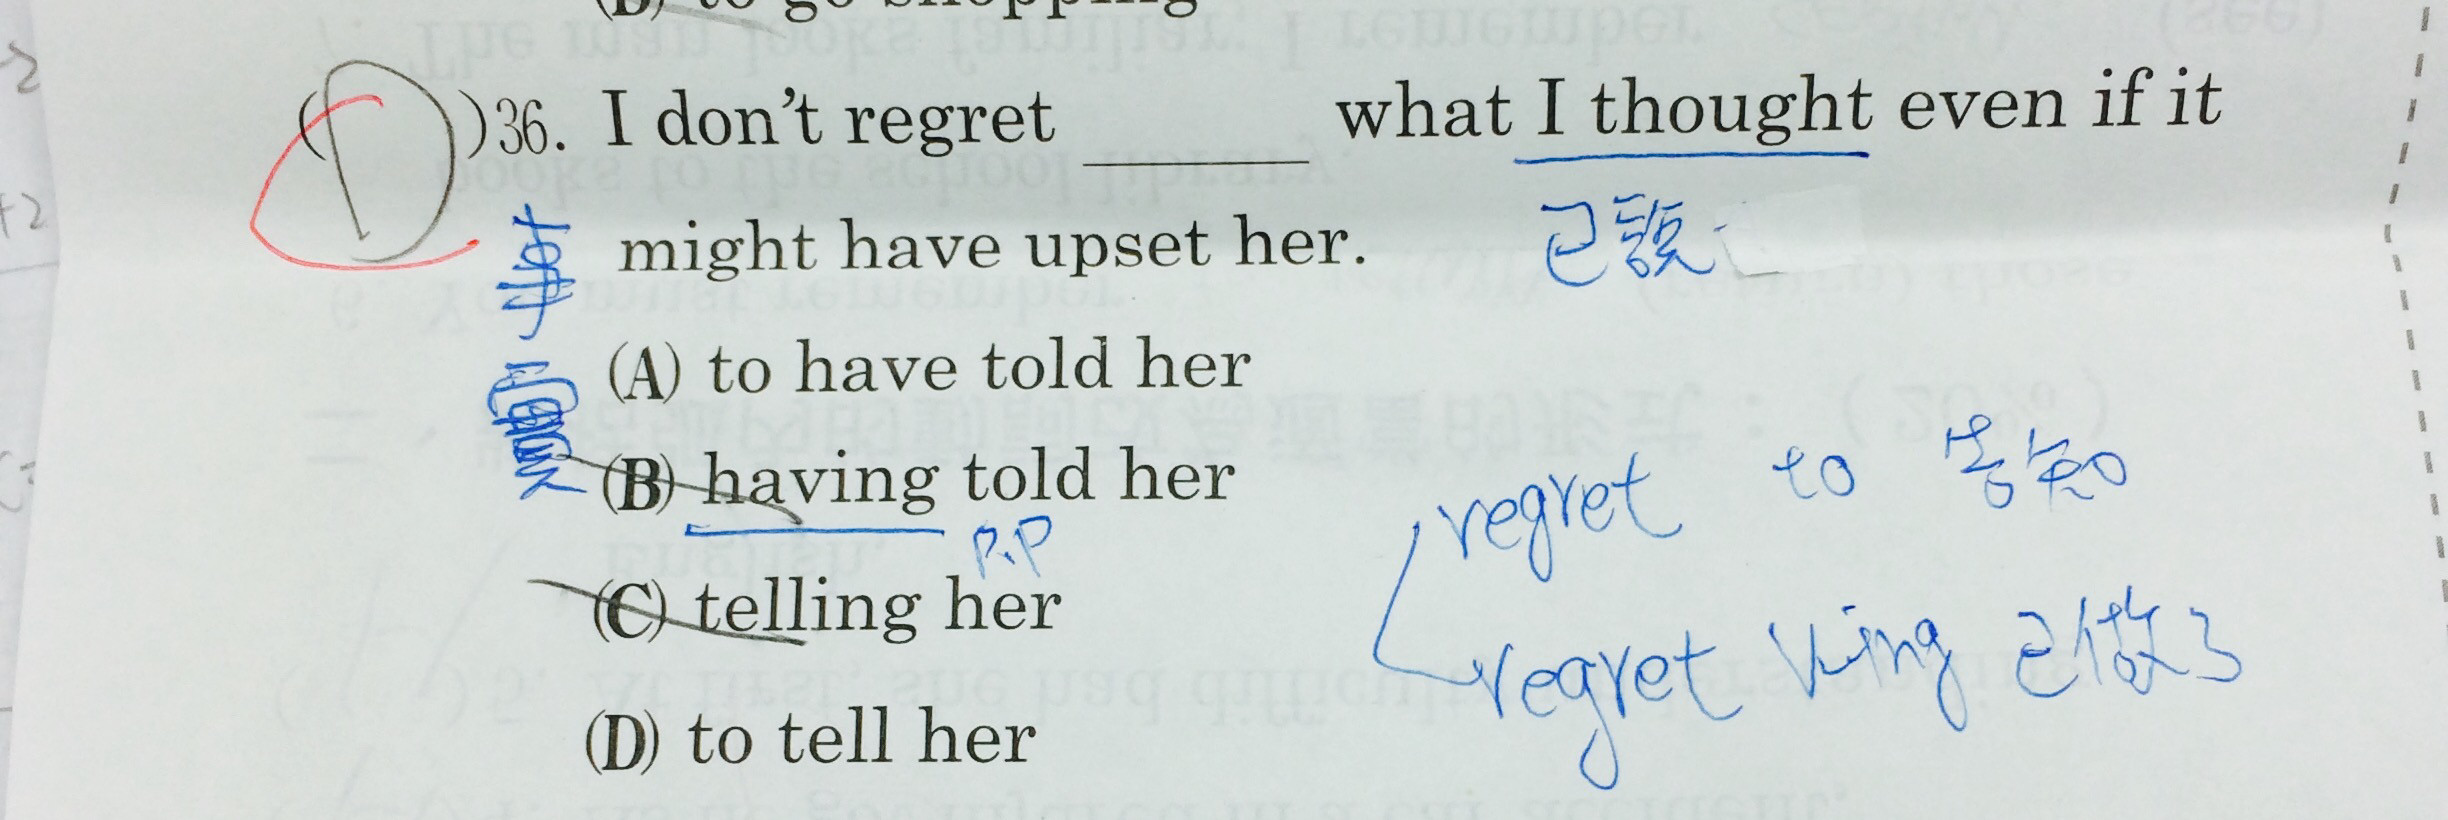 (D) to go shopping
(D)36. I don't regret ______ what I thought even if it
might have upset her.
已說
事實
(A) to have told her
(B) having told her
P.P
(C) telling her
(D) to tell her
regret to 告知
regret Ving 已做了